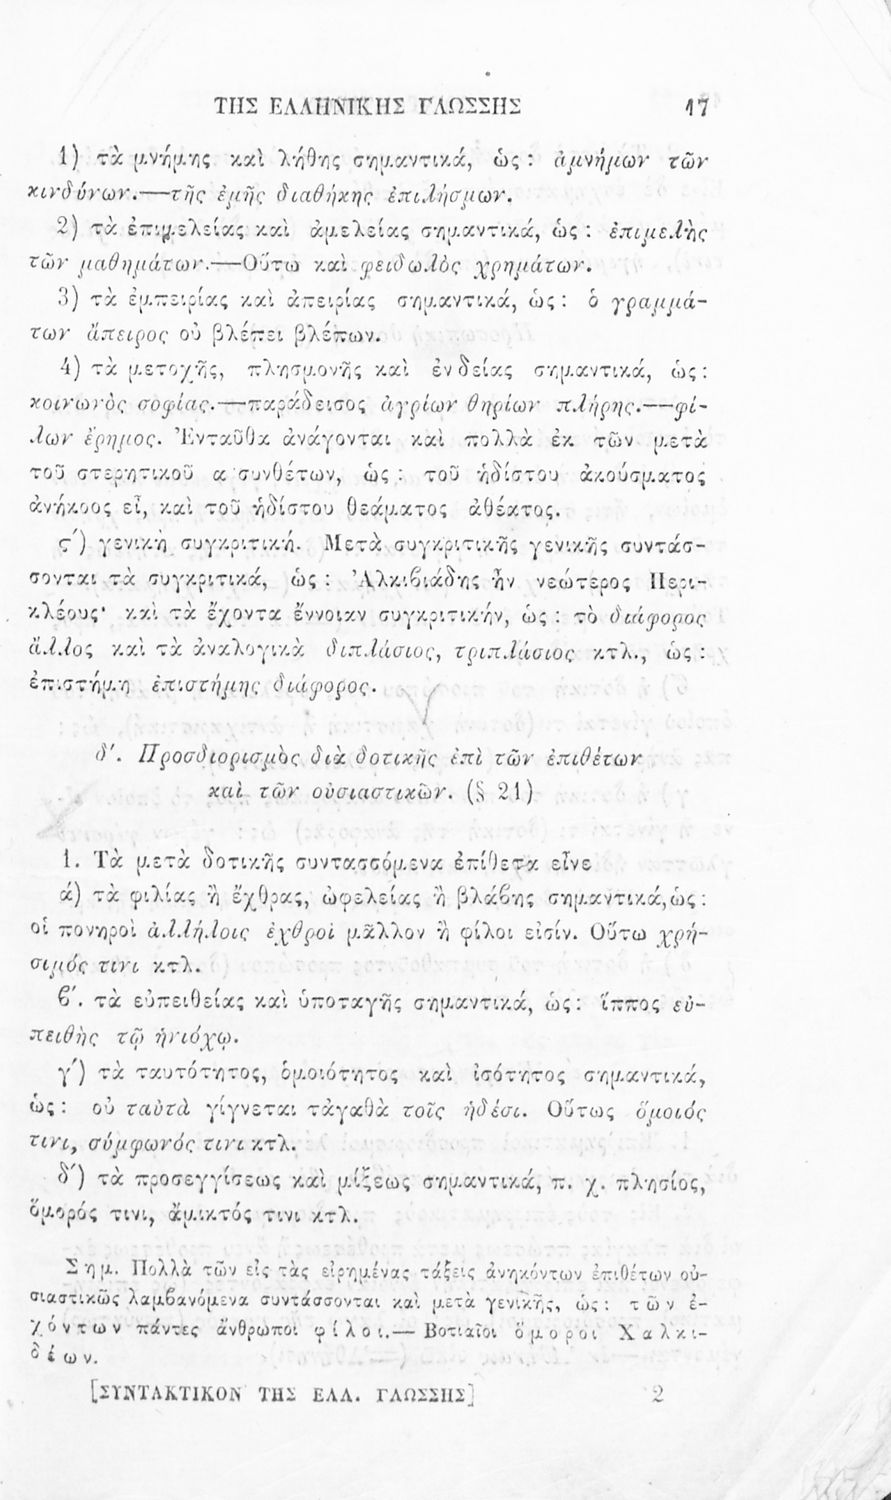 ΤΗΣ ΕΛΛΗΝΙΚΗΣ ΓΛΩΣΣΗΣ 17
1) τὰ μνήμης καὶ λήθης σημαντικά, ὡς : ἀμνήμων τῶν
κινδύνων.—τῆς ἐμῆς διαθήκης ἐπιλήσμων.
2) τὰ ἐπιμελείας καὶ ἀμελείας σημαντικά, ὡς : ἐπιμελὴς
τῶν μαθημάτων.—Οὕτω καὶ φειδωλὸς χρημάτων.
3) τὰ ἐμπειρίας καὶ ἀπειρίας σημαντικά, ὡς : ὁ γραμμά-
των ἄπειρος οὐ βλέπει βλέπων.
4) τὰ μετοχῆς, πλησμονῆς καὶ ἐνδείας σημαντικά, ὡς :
κοινωνὸς σοφίας.—παράδεισος ἀγρίων θηρίων πλήρης.—φί-
λων ἔρημος. Ἐνταῦθα ἀνάγονται καὶ πολλὰ ἐκ τῶν μετὰ
τοῦ στερητικοῦ α συνθέτων, ὡς : τοῦ ἡδίστου ἀκούσματος
ἀνήκοος εἶ, καὶ τοῦ ἡδίστου θεάματος ἀθέατος.
ς´) γενικὴ συγκριτική. Μετὰ συγκριτικῆς γενικῆς συντάσ-
σονται τὰ συγκριτικά, ὡς : Ἀλκιβιάδης ἦν νεώτερος Περι-
κλέους· καὶ τὰ ἔχοντα ἔννοιαν συγκριτικήν, ὡς : τὸ διάφορος
ἄλλος καὶ τὰ ἀναλογικὰ διπλάσιος, τριπλάσιος κτλ., ὡς :
ἐπιστήμη ἐπιστήμης διάφορος.
δ´. Προσδιορισμὸς διὰ δοτικῆς ἐπὶ τῶν ἐπιθέτων
καὶ τῶν οὐσιαστικῶν. (§ 21)
1. Τὰ μετὰ δοτικῆς συντασσόμενα ἐπίθετα εἶνε
ά) τὰ φιλίας ἢ ἔχθρας, ὠφελείας ἢ βλάβης σημαντικά, ὡς :
οἱ πονηροὶ ἀλλήλοις ἐχθροὶ μᾶλλον ἢ φίλοι εἰσίν. Οὕτω χρή-
σιμός τινι κτλ.
ϐ´. τὰ εὐπειθείας καὶ ὑποταγῆς σημαντικά, ὡς : ἵππος εὐ-
πειθὴς τῷ ἡνιόχῳ.
γ´) τὰ ταυτότητος, ὁμοιότητος καὶ ἰσότητος σημαντικά,
ὡς : οὐ ταὐτὰ γίγνεται τἀγαθὰ τοῖς ἡδέσι. Οὕτως ὅμοιός
τινι, σύμφωνός τινι κτλ.
δ´) τὰ προσεγγίσεως καὶ μίξεως σημαντικά, π. χ. πλησίος,
ὅμορός τινι, ἄμικτός τινι κτλ.
Σημ. Πολλὰ τῶν εἰς τὰς εἰρημένας τάξεις ἀνηκόντων ἐπιθέτων οὐ-
σιαστικῶς λαμβανόμενα συντάσσονται καὶ μετὰ γενικῆς, ὡς : τῶν ἐ-
χόντων πάντες ἄνθρωποι φίλοι.— Βοτιαῖοι ὅμοροι Χαλκι-
δέων.
[ΣΥΝΤΑΚΤΙΚΟΝ ΤΗΣ ΕΛΛ. ΓΛΩΣΣΗΣ] 2